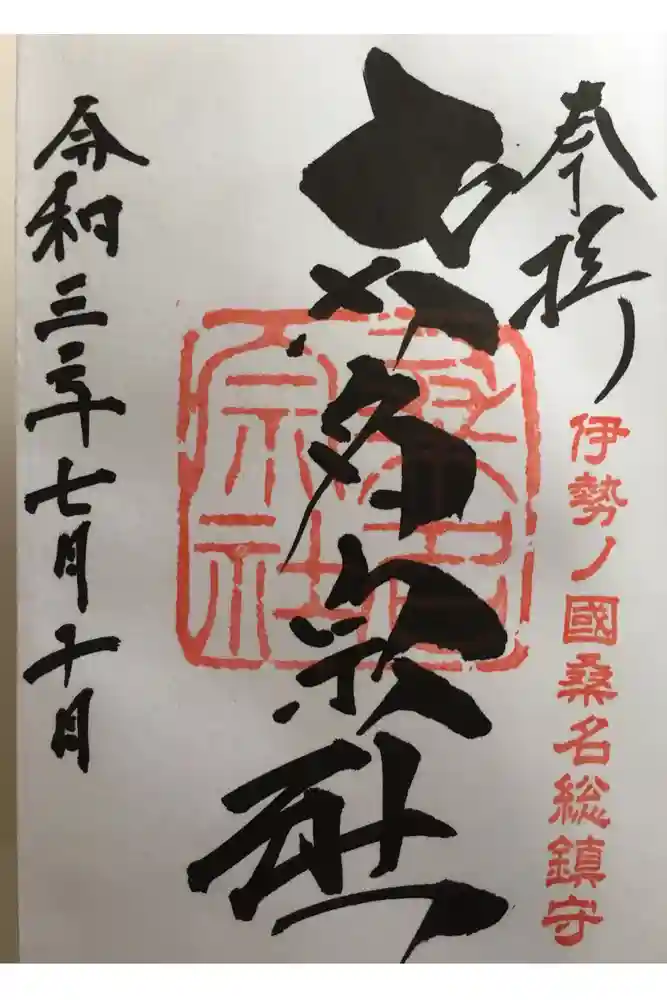 奉拝
伊勢ノ國桑名総鎮守
桑名宗社
桑名
宗社
令和三年七月十日